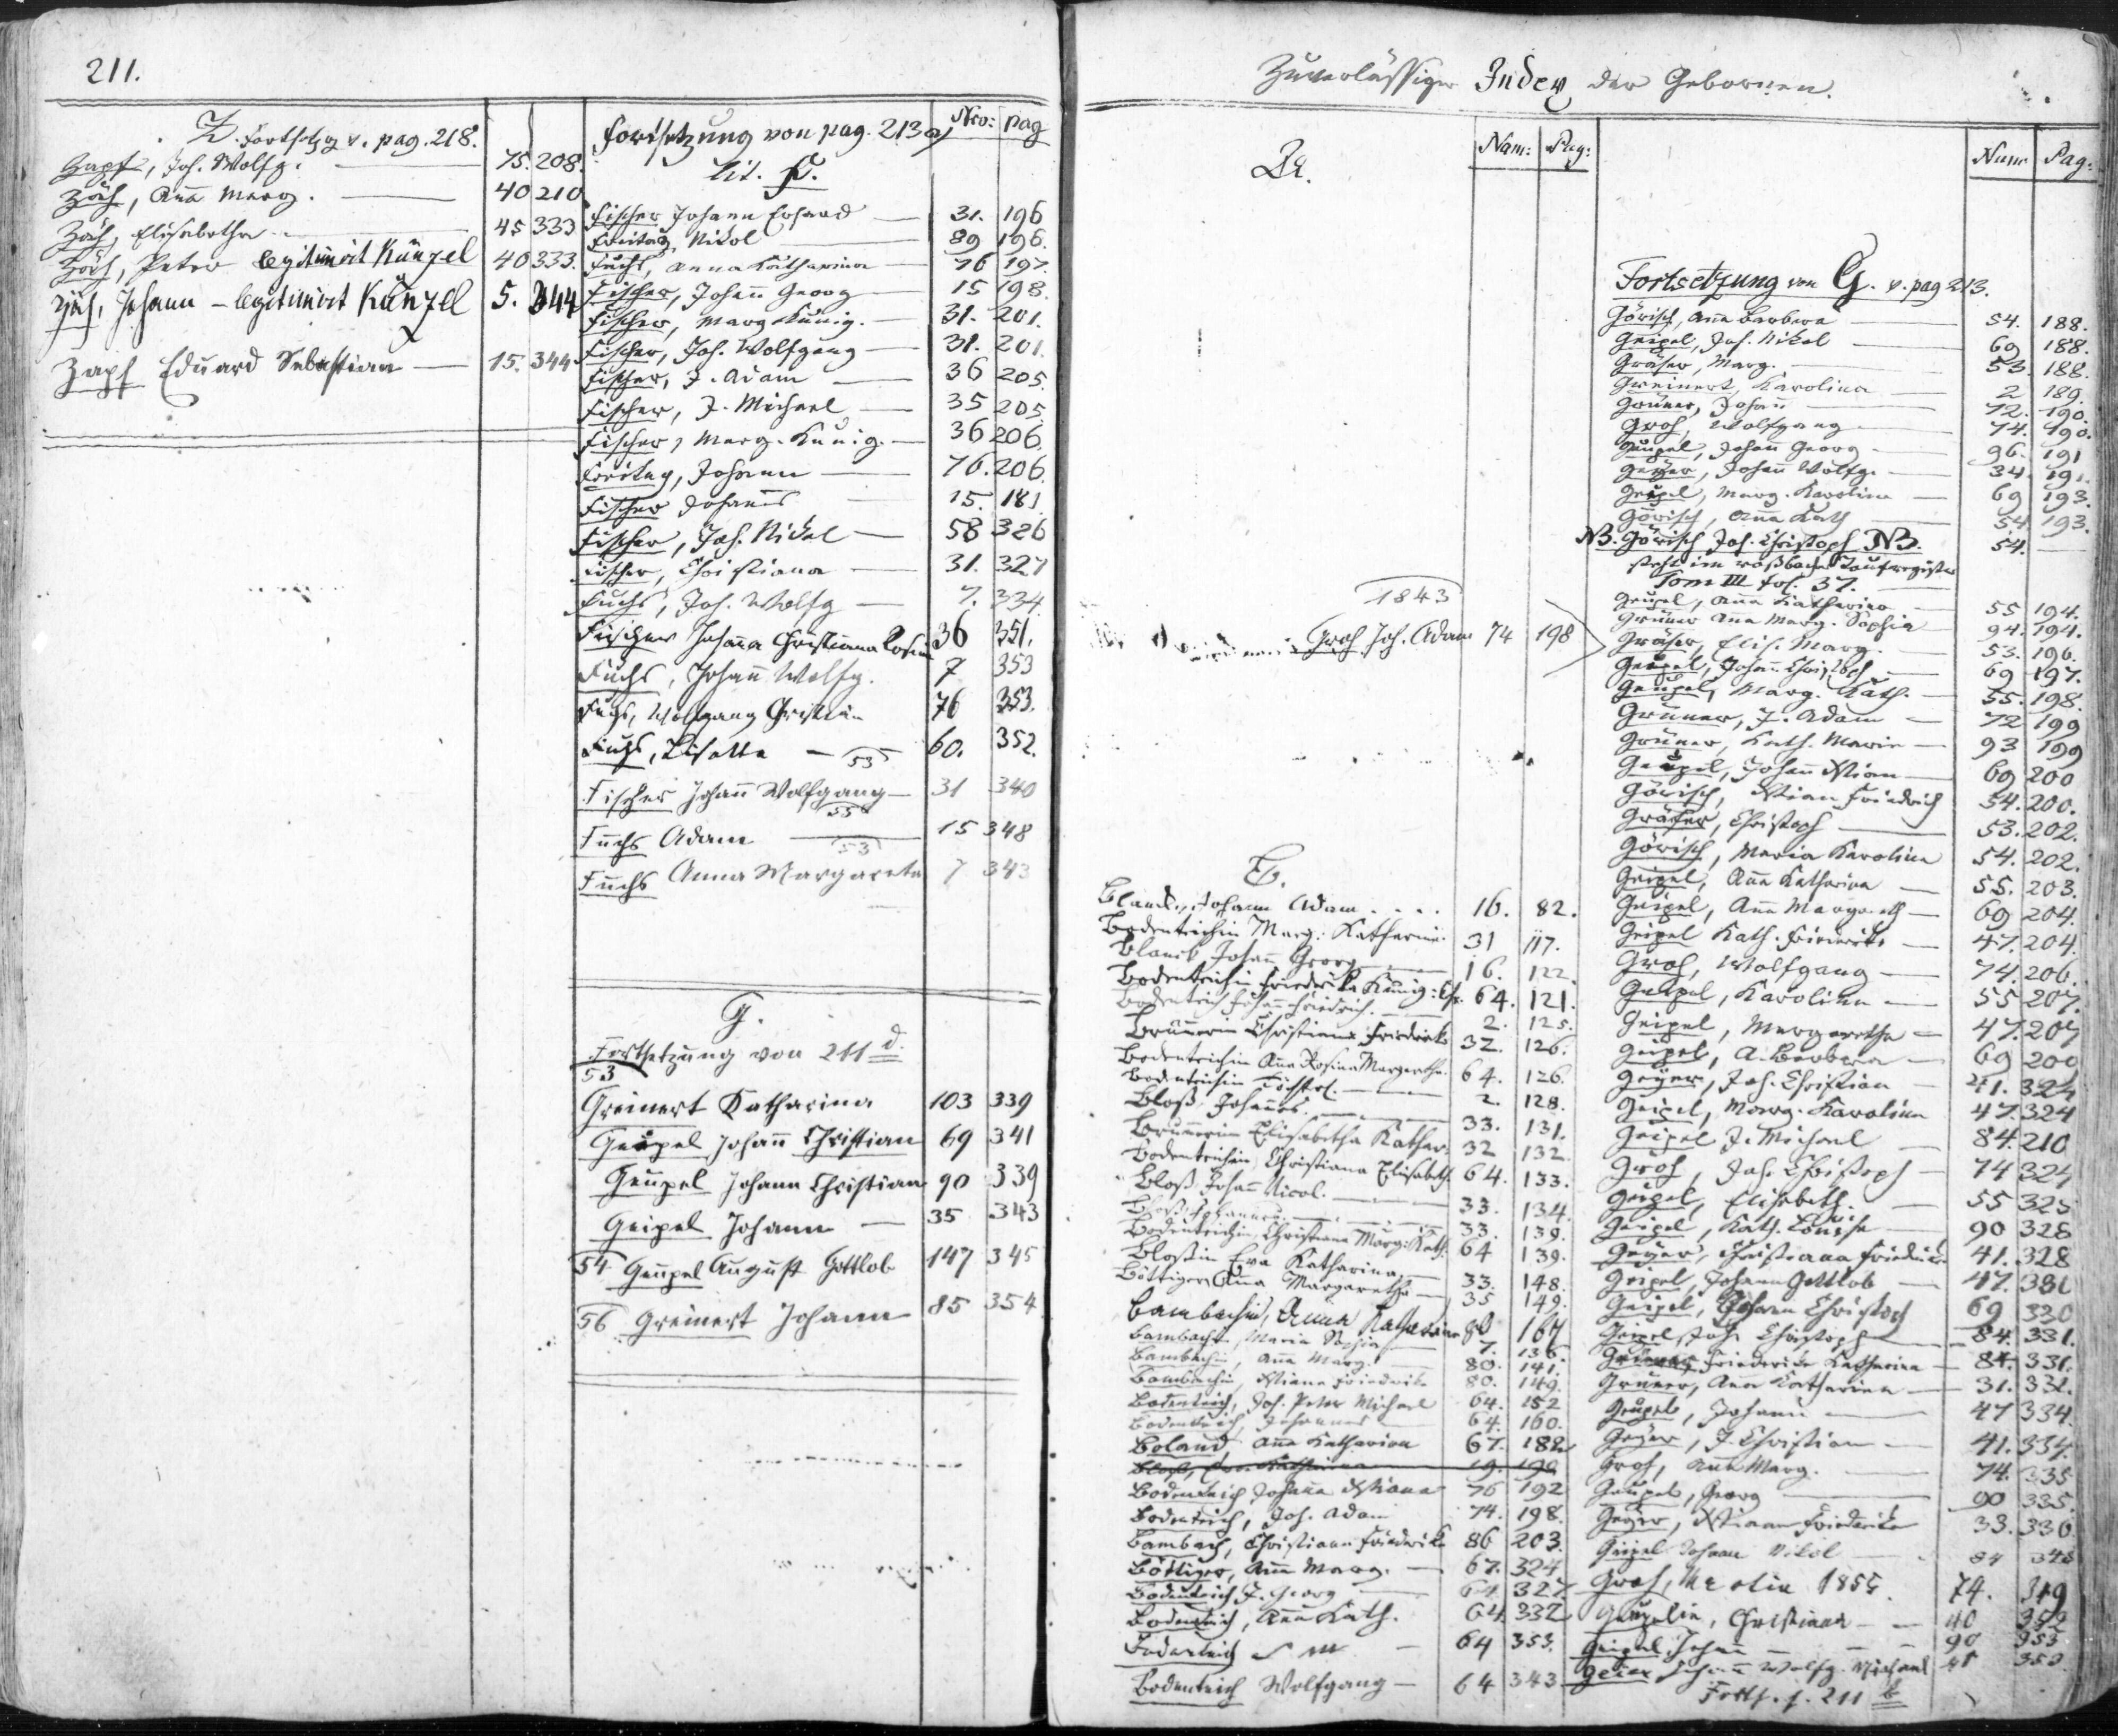 211.
Z. Fortsetzg v. pag. 218.
Zapf, Joh. Wolfg. 75. 208.
Zöh, Anna Marg. 40 210
Zöh, Elisabetha 45 333
Zöh, Peter legitimirt Künzel 40 333.
Johann - legitimirt Künzel 5. 344
Zapf Eduard Sebastian 15. 344
Fortsetzung von pag. 213 a) Nro: pag
Lit. F.
Fischer Johann Erhard 31. 196
Freitag, Nikol 89 196.
Fuchs, Anna Katharina 76 197.
Fischer, Johann Georg 15 198
Fischer, Marg. Kunig. 31. 201.
Fischer, Joh. Wolfgang 31. 201.
Fischer, J. Adam 36 205.
Fischer, J. Michael 35 205.
Fischer, Marg. Kunig. 36 206.
Freitag, Johann 76. 206.
Fischer Johannes 15. 181.
Fischer, Joh. Nikol 58 326
Fischer, Christiana 31. 327
Fuchs, Joh. Wolfg 7. 334.
Fischer Johanna Christianna Rosina 36 351.
Fuchs, Johann Wolfg. 7 353
Fuchs, Wolfgang Christian 76 353.
Fuchs, Lisette 60. 352.
53
Fischer Johann Wolfgang 31 340
55
Fuchs Adam 15 348
53
Fuchs Anna Margareta 7 343
G.
Fortsetzung von 211 d.
53
Greinert Katharina 103 339
Geipel Johann Christian 69 341
Geupel Johann Christian 90 339
Geipel Johann 35 343
54 Geupel August Gottlob 147 345
56 Greinert Johann 85 354
Zuverlässiger Index der Gebornen.
Num: Pag:
1843
Groh Joh. Adam 74 198
B.
Blanck, Johann Adam 16. 82.
Bodenteichin Marg: Katharina 31 117.
Blanck Johann Georg 16. 122.
Bodenteichin Friederika Kunig: 64. 121.
Bodenteich Johann Friedrich. 2. 125.
Brunnerin Christiana Friederika 32. 126.
Bodenteichin Anna Rosina Margaretha. 64. 126.
Bodenteichin 2. 128.
Bloß Johannes. 33. 131.
Brunnerin Elisabetha Kathar. 32 132.
Bodenteichin, Christiana Elisabeth. 64. 133.
Bloß Johann Nicol. 33. 134.
Bloß Johannes 33. 139.
Bodenteichin, Christiana Marg: Kath: 64 139.
Bloßin Eva Katharina 33. 148.
Böttiger Anna Margaretha 35 149.
Bambachin, Anna Katharina 80 167
Bambach, Maria Sophia 7. 136.
Bambachin, Anna Marg. 80. 141.
Bambachin, Friedrike 80. 149.
Bodenteich, Joh. Peter Michael 64. 152
Bodenteich, Johannes 64. 160.
Boland, Anna Katharina 67. 182
19. 190
Bodenteich Johanna 76 192
Bodenteich, Joh. Adam 74. 198.
Bambach, Christiana Friederike 86 203.
Böttiger, Anna Marg. 67. 324
Bodenteich J. Georg 64. 327.
Bodenteich, Anna Kath. 64. 332
Bodenteich 64 353.
Bodenteich Wolfgang 64 343
Num Pag:
Fortsetzung von G. v. pag 213.
Görisch, Anna Barbara 54. 188.
Geipel, Joh. Nikol 69 188.
Gräser, Marg. 53. 188.
Greinert, Karolina 2 189.
Gruner, Johann 72. 190.
Groh, Wolfgang 74. 190.
Geupel, Johann Georg 96. 191
Geyer, Johann Wolfg. 34. 191.
Geipel, Marg. Karolina 69 193.
Görisch, Anna Kath 54 193.
NB. Görisch Joh. Christoph NB. 54.
steht im roßbacher Taufregister
Tom III fol. 37.
Geupel, Anna Katharina 55 194.
Gruner Ana Marg. Sophia 94. 194.
Gräser, Elis. Marg. 53. 196.
Geipel, Johann Christoph 69 197.
Geupel, Marg. Kath. 55. 198.
Gruner, J. Adam 72 199
Gruner, Kath. Maria 93 199
Geipel, Johann 69 200
Görisch, Friedrich 54. 200.
Gräser, Christoph 53. 202.
Görisch, Maria Karolina 54. 202.
Geipel, Anna Katharina 55. 203.
Geipel, Ana Margareth 69 204.
Geipel Kath. Friederike 47. 204.
Groh, Wolfgang 74. 206.
Geupel, Karolina 55 207.
Geipel, Margaretha 47. 207
Geipel, A. Barbara 69 200
Geyer, Joh. Christian 41. 324
Geipel, Marg. Karolina 47. 324
Geipel J. Michael 84. 210
Groh, Joh. Christoph 74 324
Geipel, Elisabeth. 55 325
Geipel, Kath. Louise 90 328
Geyer, Christiana Friedrike 41. 328
Geipel, Johann Gottlob 47. 330
Geipel, Johann Christoph 69 330
Geipel, Joh. Christoph 84. 331.
Friederike Katharina 84. 331.
Gruner, Anna Katharina 31. 332.
Geupel, Johann 47 334.
Geyer, J. Christian 41. 334.
Groh, Anna Marg. 74. 335
Geupel, Georg 90 335.
Geyer, Friederike 33. 336
Geipel Johann Nikol 84 348
Groh, 1855 74. 349
Geupelin, Christiana 40 352
Geipel Johann 90 353
Geier Johann Wolfg. Michael 41 350
Forts. f. 211 b